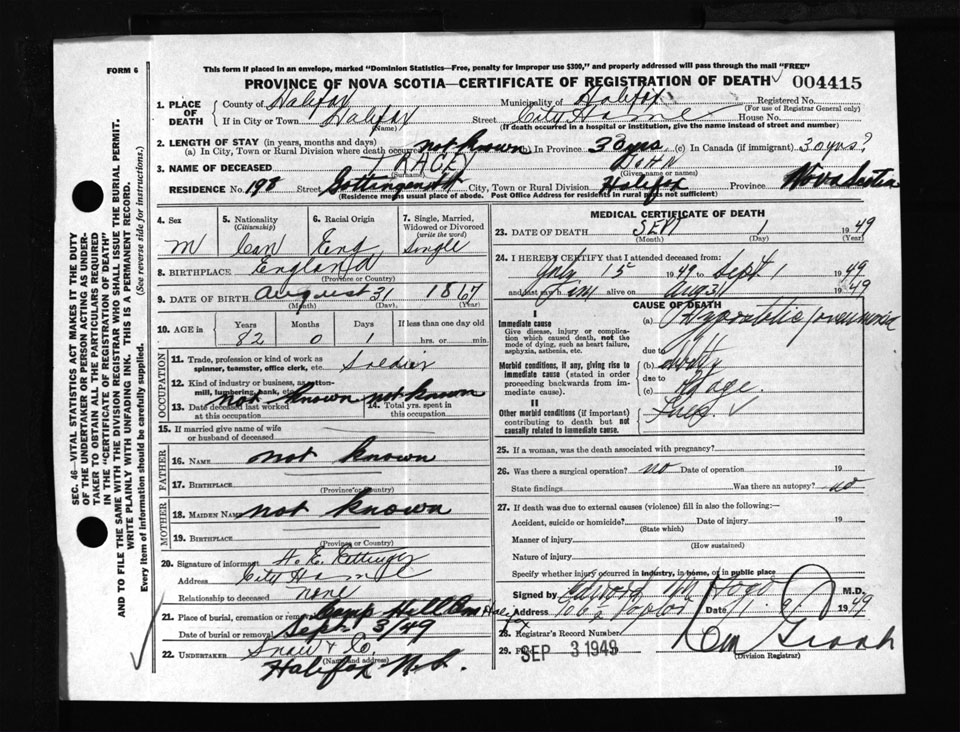 FORM 6
This form if placed in an envelope, marked "Dominion Statistics—Free, penalty for improper use $300," and properly addressed will pass through the mail "FREE"
PROVINCE OF NOVA SCOTIA—CERTIFICATE OF REGISTRATION OF DEATH 004415
1. PLACE OF DEATH
County of Halifax Municipality of Halifax Registered No.
(For use of Registrar General only)
If in City or Town Halifax Street City Home House No.
(Name) (If death occurred in a hospital or institution, give the name instead of street and number)
2. LENGTH OF STAY (in years, months and days)
(a) In City, Town or Rural Division where death occurred not known (b) In Province 30 yrs (c) In Canada (if immigrant) 30 yrs?
3. NAME OF DECEASED TRACEY John
(Surname) (Given name or names)
RESIDENCE No. 198 Street Gottingen St City, Town or Rural Division Halifax Province Nova Scotia
(Residence means usual place of abode. Post Office Address for residents in rural parts not sufficient)
4. Sex
M
5. Nationality
(Citizenship)
Can
6. Racial Origin
Eng
7. Single, Married, Widowed or Divorced
(write the word)
Single
8. BIRTHPLACE England
(Province or Country)
9. DATE OF BIRTH August 31 1867
(Month) (Day) (Year)
10. AGE in
Years Months Days If less than one day old
82 0 1 hrs. or min.
OCCUPATION
11. Trade, profession or kind of work as spinner, teamster, office clerk, etc. Soldier
12. Kind of industry or business, as cotton-mill, lumbering, bank, etc.
not known not known
13. Date deceased last worked at this occupation
14. Total yrs. spent in this occupation
15. If married give name of wife or husband of deceased
FATHER
16. NAME not known
17. BIRTHPLACE
(Province or Country)
MOTHER
18. MAIDEN NAME not known
19. BIRTHPLACE
(Province or Country)
20. Signature of informant H. E. Ettinger
Address City Home
Relationship to deceased none
21. Place of burial, cremation or removal Camp Hill Cem Halifax
Date of burial or removal Sept 3/49
22. UNDERTAKER Snow & Co.
(Name and address)
Halifax N.S.
MEDICAL CERTIFICATE OF DEATH
23. DATE OF DEATH SEPT 1 1949
(Month) (Day) (Year)
24. I HEREBY CERTIFY that I attended deceased from:
July 15 1949 to Sept 1 1949
and last saw him alive on Aug 31 1949
CAUSE OF DEATH
I
Immediate cause
Give disease, injury or complication which caused death, not the mode of dying, such as heart failure, asphyxia, asthenia, etc.
(a) Hypostatic pneumonia
due to
Morbid conditions, if any, giving rise to immediate cause (stated in order proceeding backwards from immediate cause).
(b)
due to
(c) age.
II
Other morbid conditions (if important) contributing to death but not causally related to immediate cause.
25. If a woman, was the death associated with pregnancy?
26. Was there a surgical operation? no Date of operation 19
State findings Was there an autopsy? no
27. If death was due to external causes (violence) fill in also the following:—
Accident, suicide or homicide? Date of injury 19
(State which)
Manner of injury
(How sustained)
Nature of injury
Specify whether injury occurred in industry, in home, or in public place
Signed by M.D.
Address Date 1949
28. Registrar's Record Number
29. SEP 3 1949
(Division Registrar)
SEC. 46—VITAL STATISTICS ACT MAKES IT THE DUTY
OF THE UNDERTAKER OR PERSON ACTING AS UNDER-
TAKER TO OBTAIN ALL THE PARTICULARS REQUIRED
IN THE "CERTIFICATE OF REGISTRATION OF DEATH"
AND TO FILE THE SAME WITH THE DIVISION REGISTRAR WHO SHALL ISSUE THE BURIAL PERMIT.
WRITE PLAINLY WITH UNFADING INK. THIS IS A PERMANENT RECORD.
Every item of information should be carefully supplied. (See reverse side for instructions.)